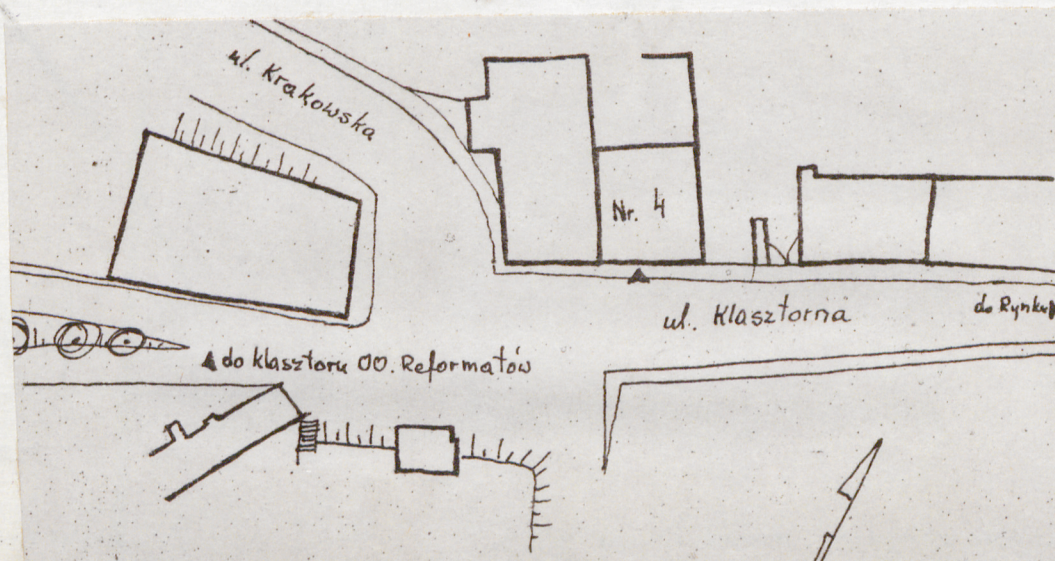 ul. Krakowska
Nr. 4
ul. Klasztorna
do Rynku
do klasztoru OO. Reformatów